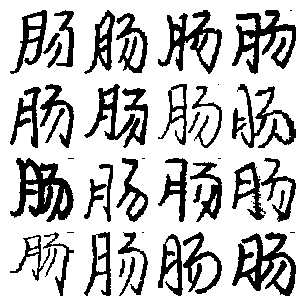 肠肠肠肠
肠肠肠肠
肠肠肠肠
肠肠肠肠